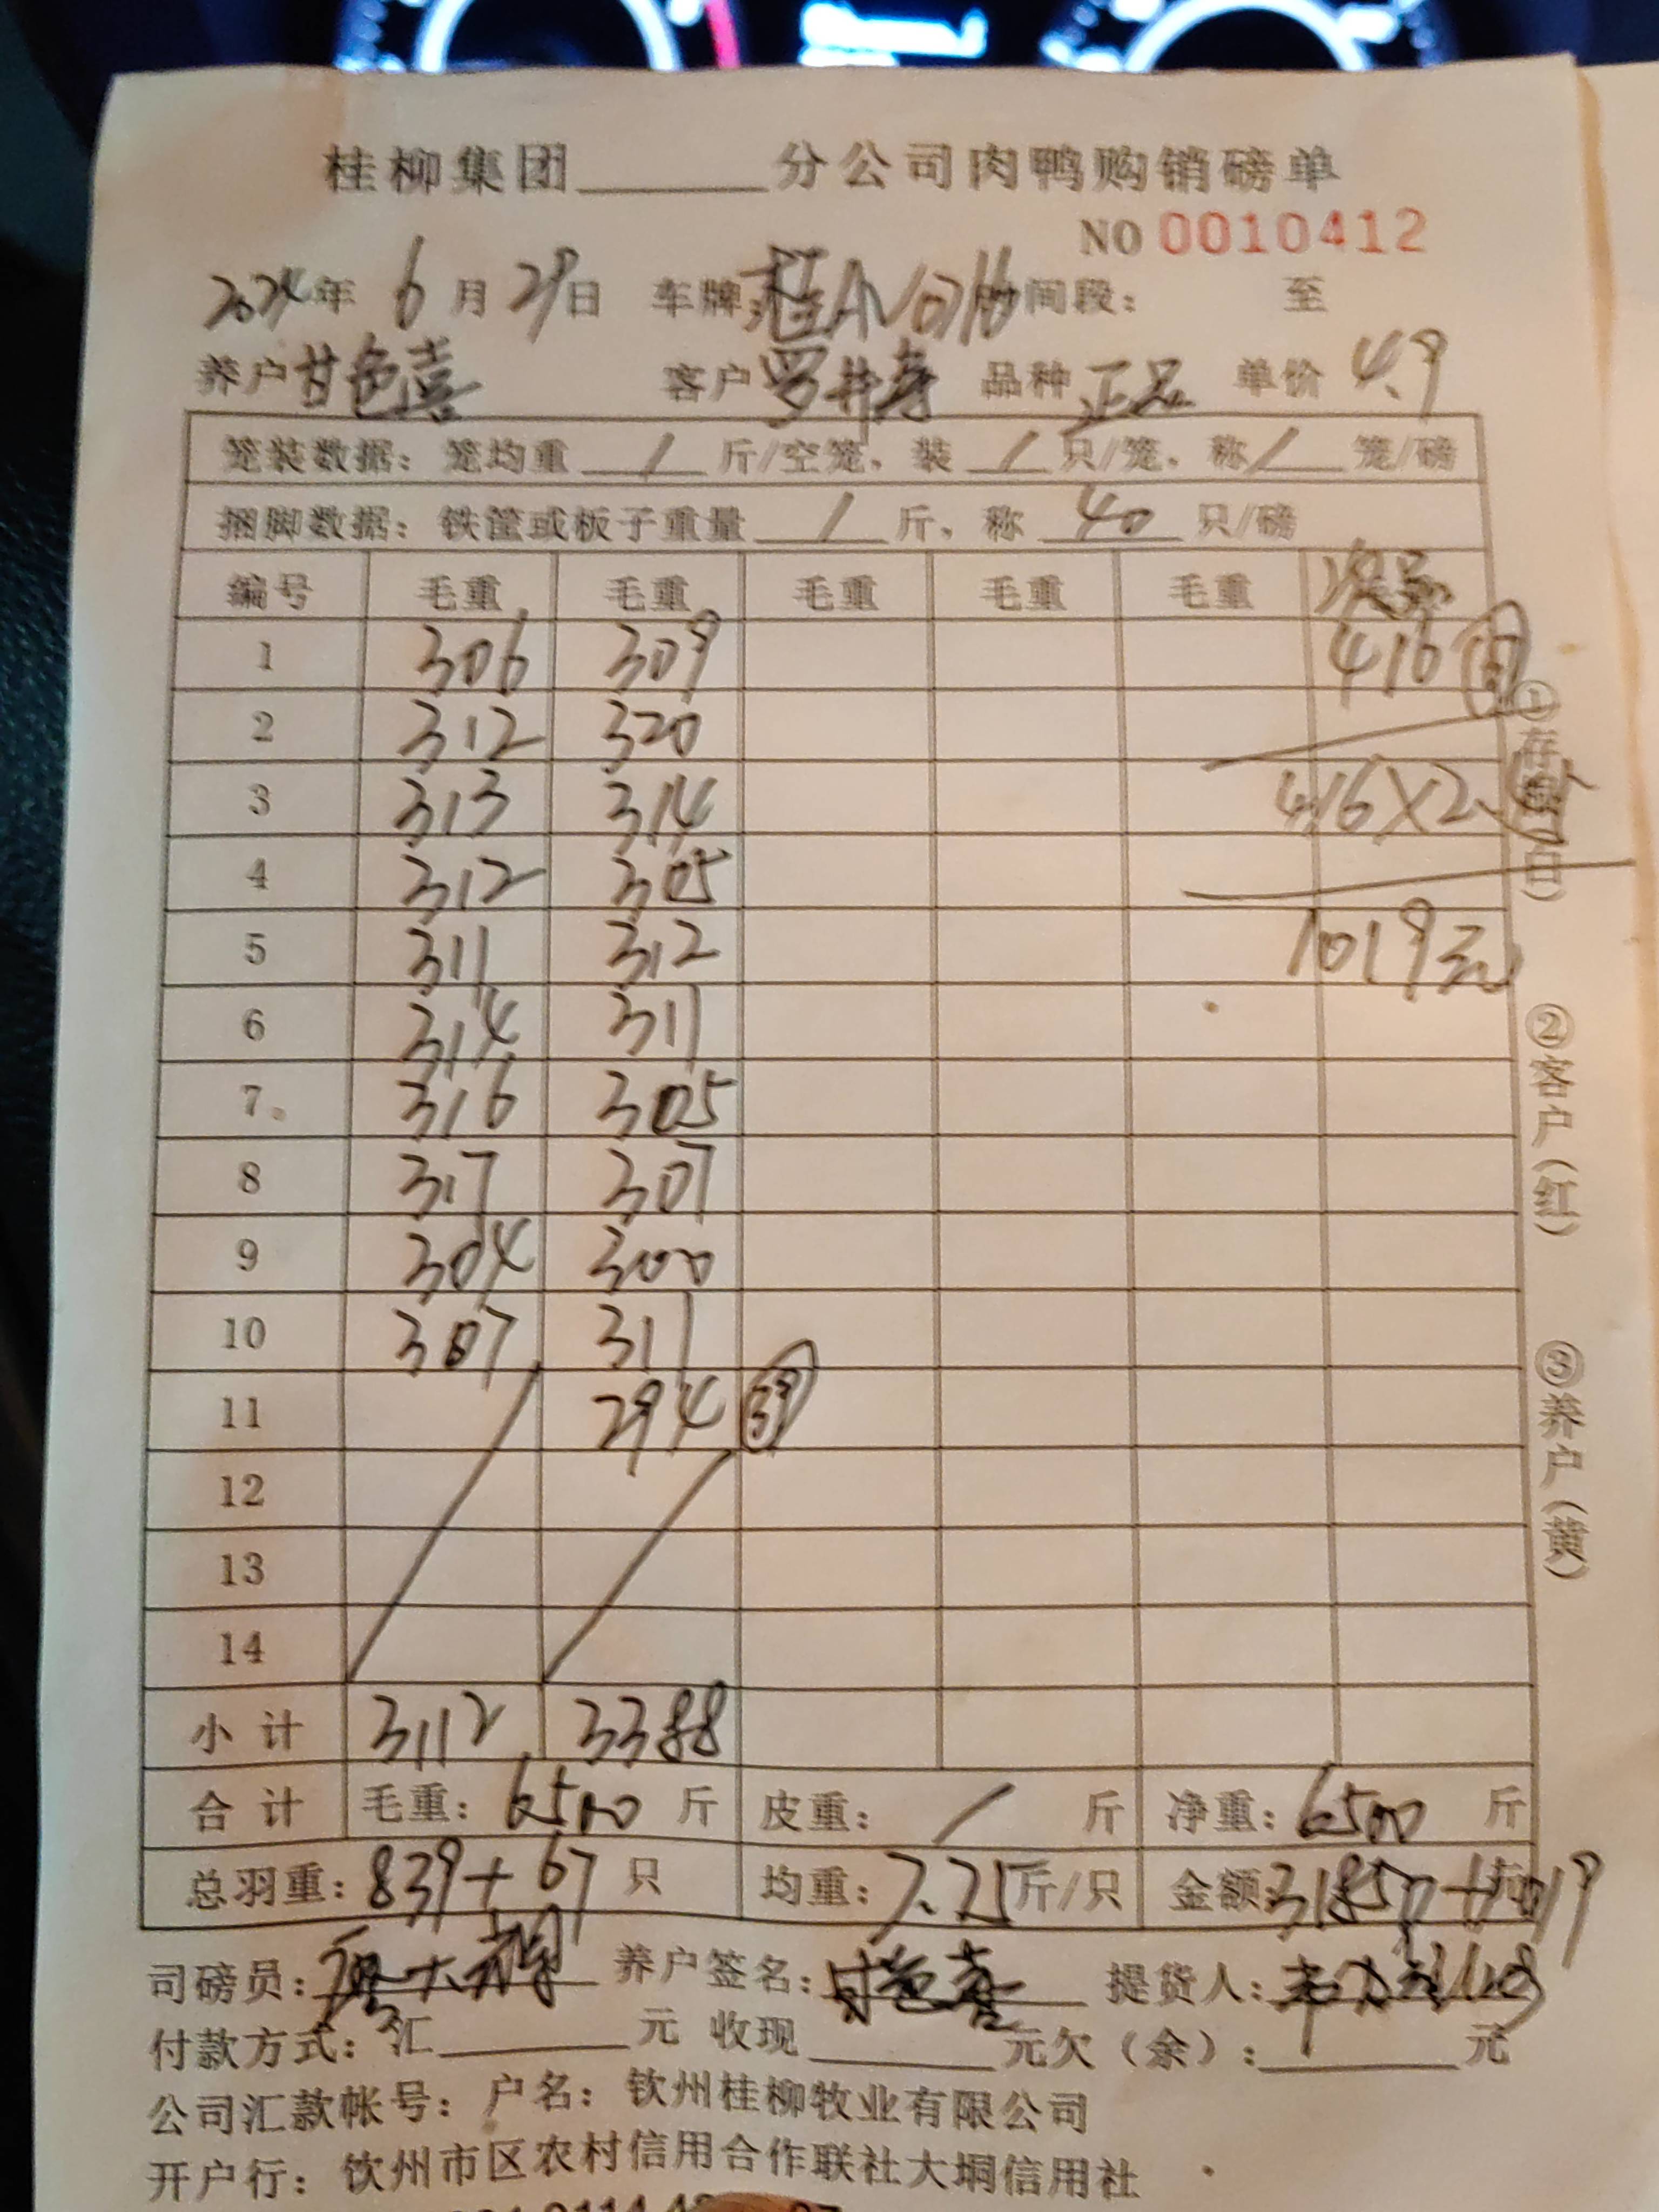 桂柳集团______分公司肉鸭购销磅单
NO 0010412
2024年 6 月 29日 车牌:桂A 间段: 至
养户 甘色喜 客户 罗井寿 品种 正品 单价 4.9
笼装数据:笼均重 / 斤/空笼,装 / 只/笼,称 / 笼/磅
捆脚数据:铁筐或板子重量 / 斤,称 40 只/磅
编号 毛重 毛重 毛重 毛重 毛重 次品
1 306 309 416
2 312 320
3 313 314 416×2.
4 312 305
5 311 312 1019元
6 314 311
7 316 305
8 317 307
9 304 300
10 307 311
11 294 39
12
13
14
小计 3112 3388
合计 毛重:6500 斤 皮重: / 斤 净重:6500 斤
总羽重:839+67 只 均重:7.75斤/只 金额:31850+1019
司磅员: 养户签名:甘色喜 提货人:
付款方式:汇______元 收现______元欠(余):______元
公司汇款帐号:户名:钦州桂柳牧业有限公司
开户行:钦州市区农村信用合作联社大垌信用社
①存根(白)
②客户(红)
③养户(黄)